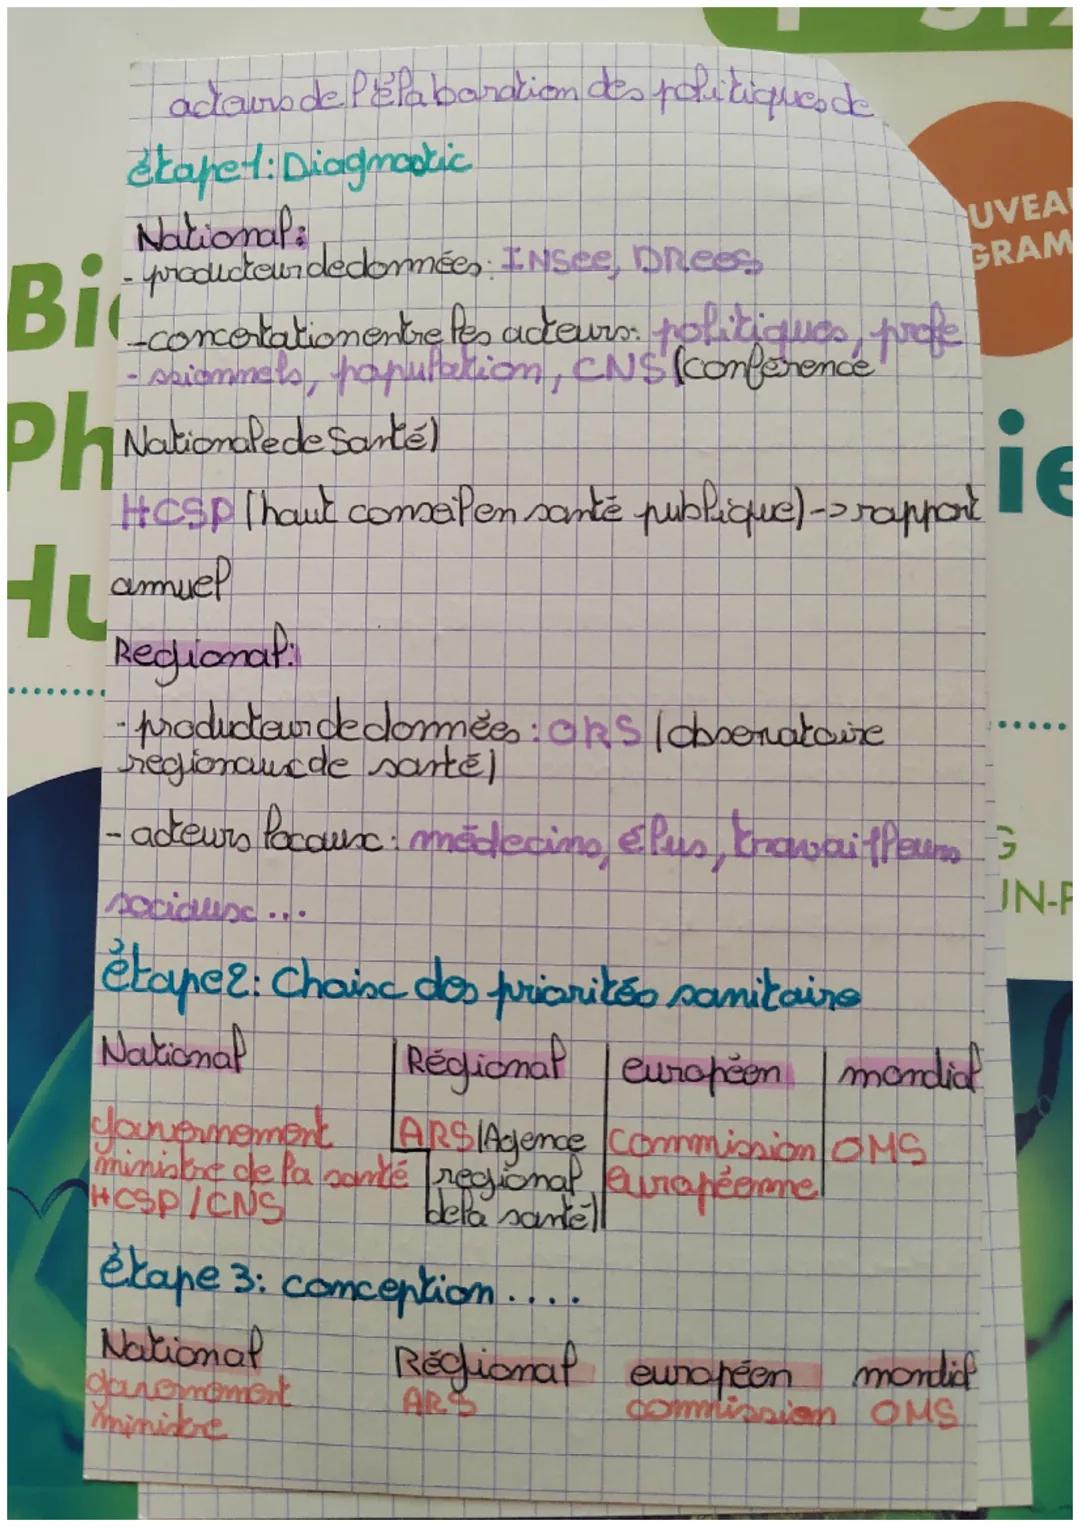 acteurs de l'élaboration des politiques de
étape 1: Diagnostic
National:
- producteur de données: INSee, DRees
- concertation entre les acteurs: politiques, profe
- ssionnels, population, CNS (conférence
Nationale de Santé)
HCSP (haut conseil en santé publique) -> rapport
annuel
Regional:
- producteur de données: ORS (observatoire
regionaux de santé)
- acteurs locaux: médecins, élus, travailleurs
sociaux ...
étape 2: Choix des priorités sanitaire
National Régional européen mondial
gouvernement ARS (Agence commission OMS
ministre de la santé regional européenne
HCSP / CNS de la santé)
étape 3: conception ....
National Régional européen mondial
gouvernement ARS commission OMS
ministre
UVEA
GRAM
Bi
Ph
ie
Hu
G
UN-P